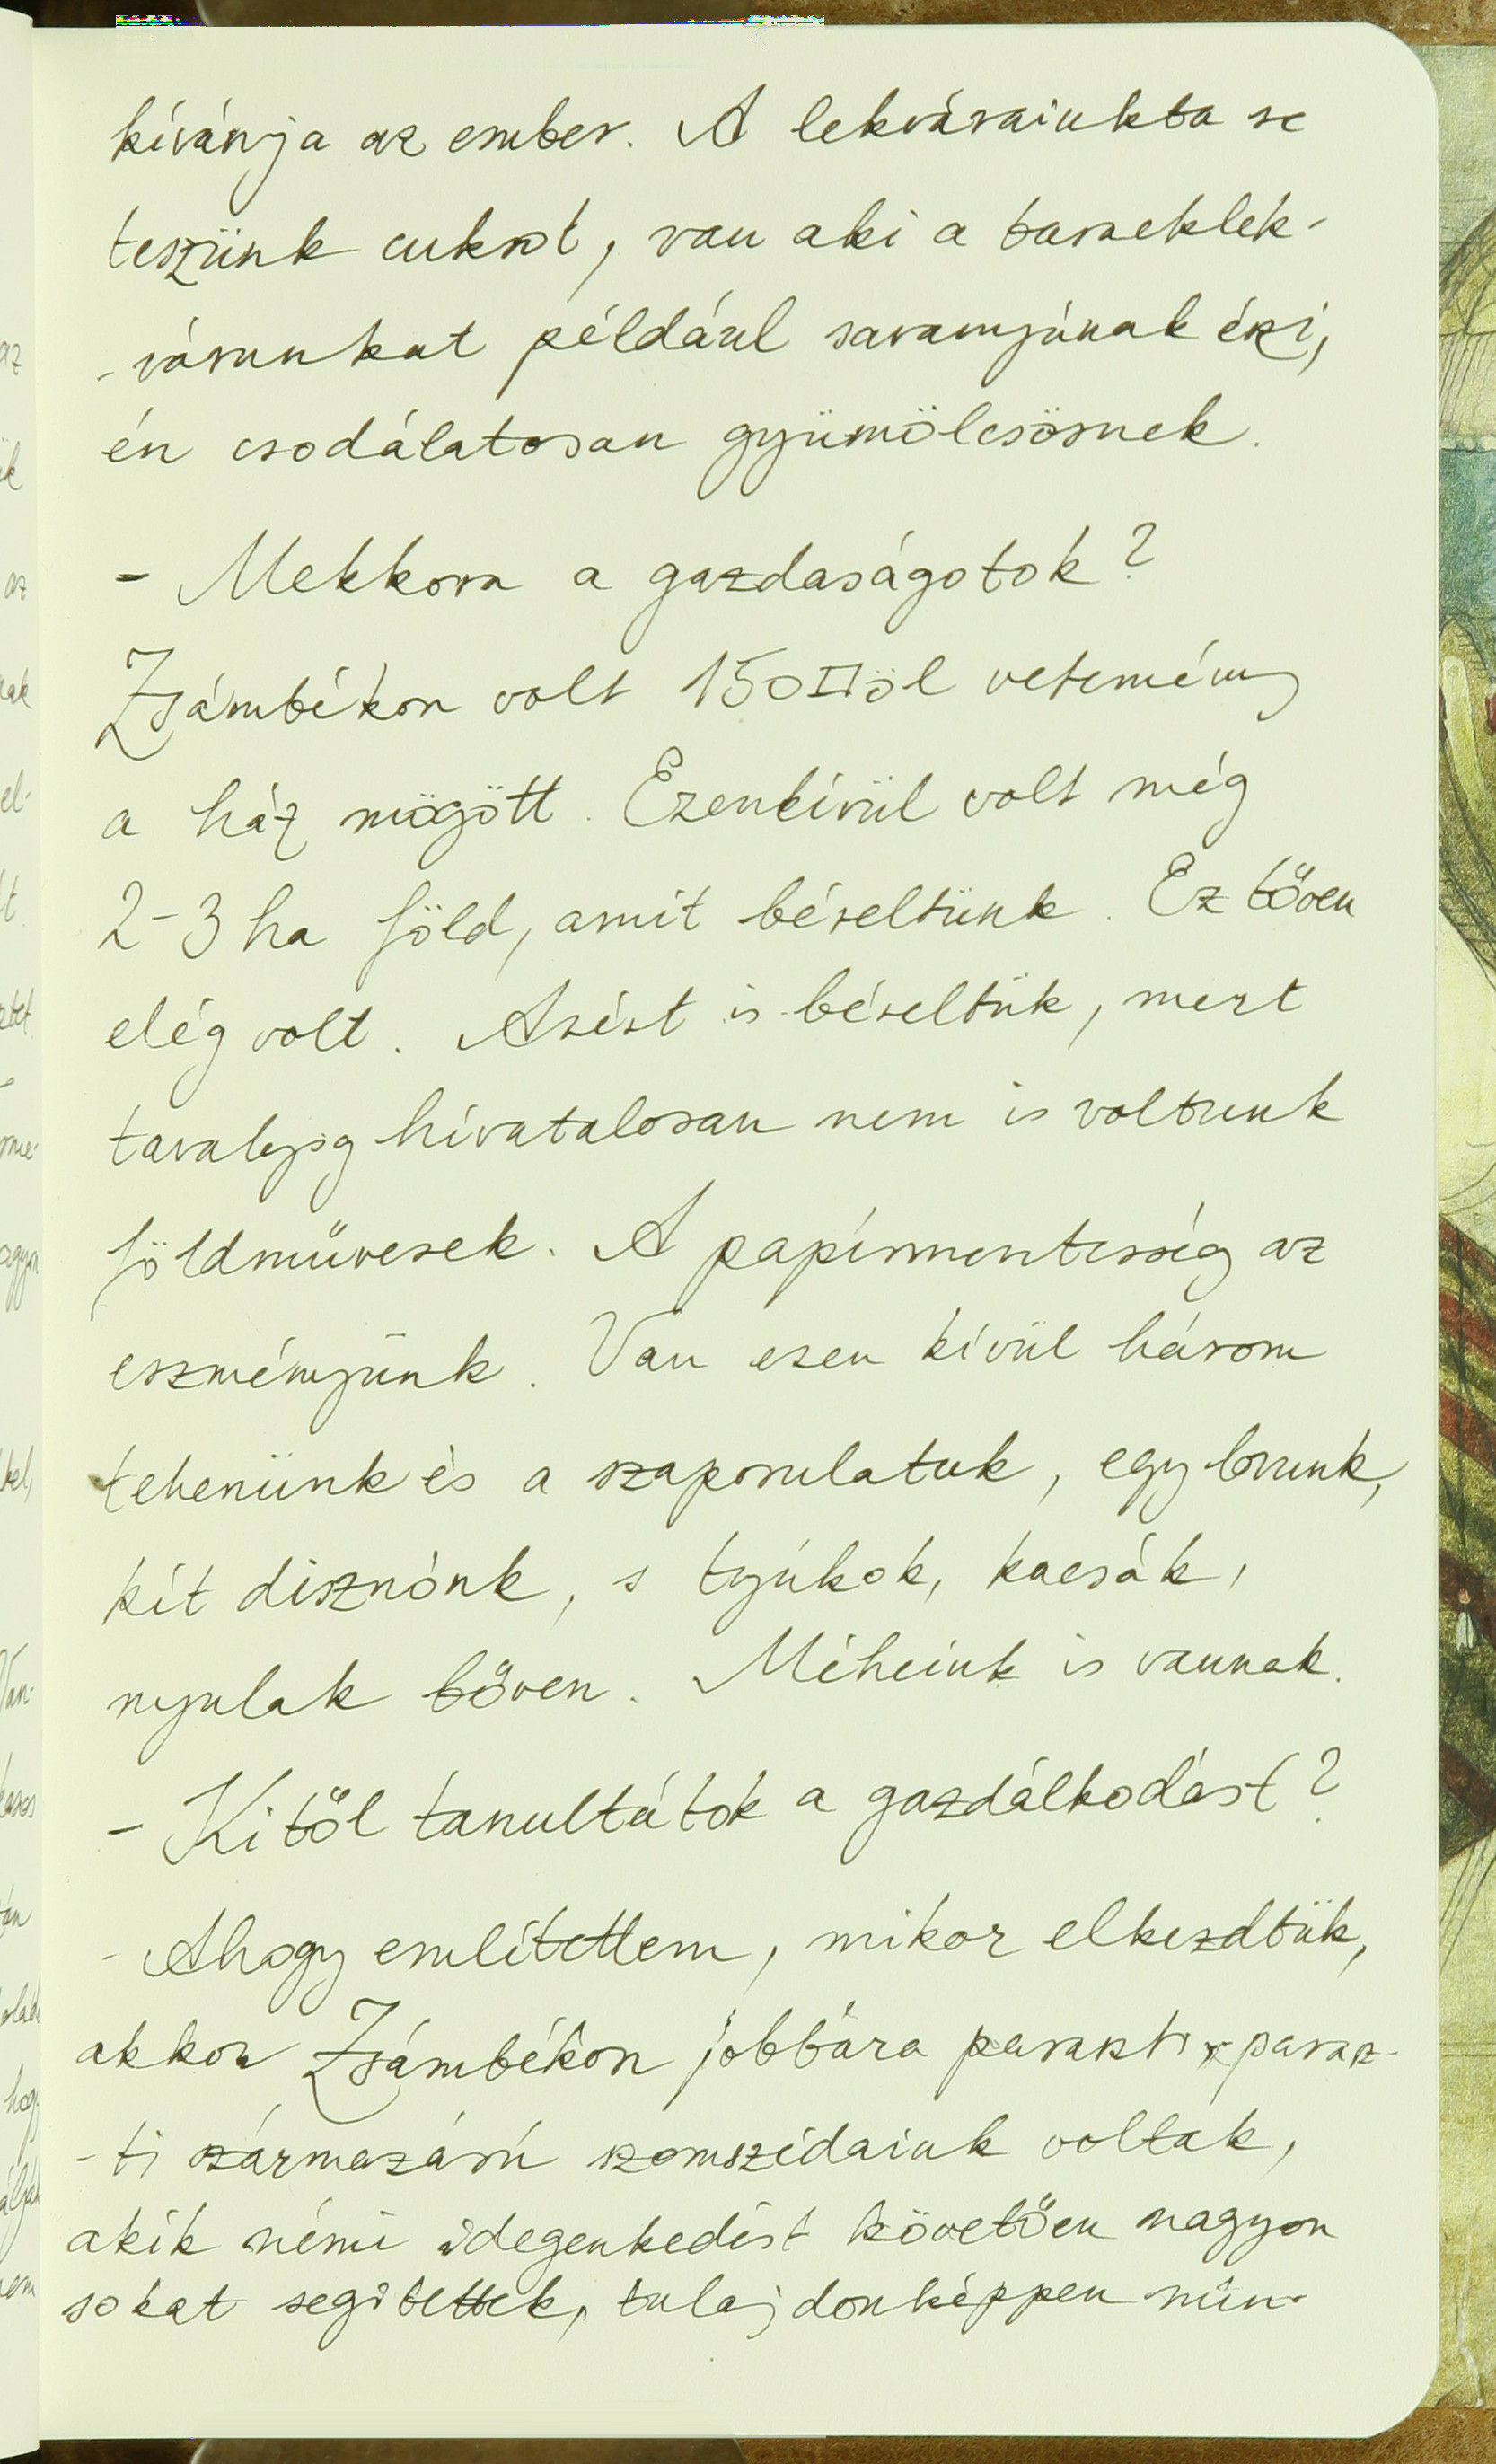 kívánja az ember. A lekvárainkba se
teszünk cukrot, van aki a baracklek-
-várunkat például savanyúnak érzi,
én csodálatosan gyümölcsösnek.
- Mekkora a gazdaságotok?
Zsámbékon volt 150□öl vetemény
a ház mögött. Ezenkívül volt még
2-3 ha föld, amit béreltünk. Ez bőven
elég volt. Azért is béreltük, mert
tavalyig hivatalosan nem is voltunk
földművesek. A papírmentesség az
eszményünk. Van ezen kívül három
tehenünk és a szaporulatuk, egy lovunk,
két disznónk, s tyúkok, kacsák,
nyulak bőven. Méheink is vannak.
- Kitől tanultátok a gazdálkodást?
- Ahogy említettem, mikor elkezdtük,
akkor Zsámbékon jobbára paraszti, parasz-
-ti származású szomszédaink voltak,
akik némi idegenkedést követően nagyon
sokat segítettek, tulajdonképpen min-